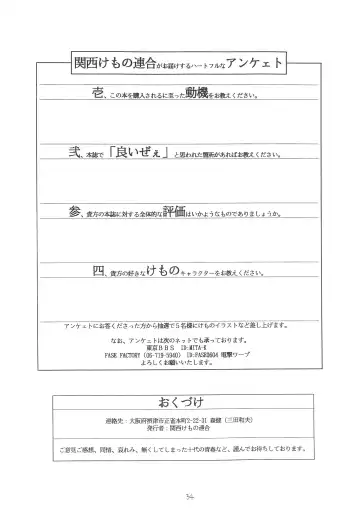 関西けもの連合がお届けするハートフルなアンケェト
壱、この本を購入されるに至った動機をお教えください。
弐、本誌で「良いぜぇ」と思われた箇所があればお教えください。
参、貴方の本誌に対する全体的な評価はいかようなものでありましょうか。
四、貴方の好きなけものキャラクターをお教えください。
アンケェトにお答えくださった方から抽選で5名様にけものイラストなど差し上げます。
なお、アンケェトは次のネットでも承っております。
東京BBS ID:MITA-K
FASE FACTORY (06-719-5940) ID:FASE0604 電撃ワープ
よろしくお願いいたします。
おくづけ
連絡先:大阪府摂津市正雀本町2-22-31 森健(三田和夫)
発行者:関西けもの連合
ご意見ご感想、同情、哀れみ、無くしてしまった十代の青春など、謹んでお待ちしております。
34